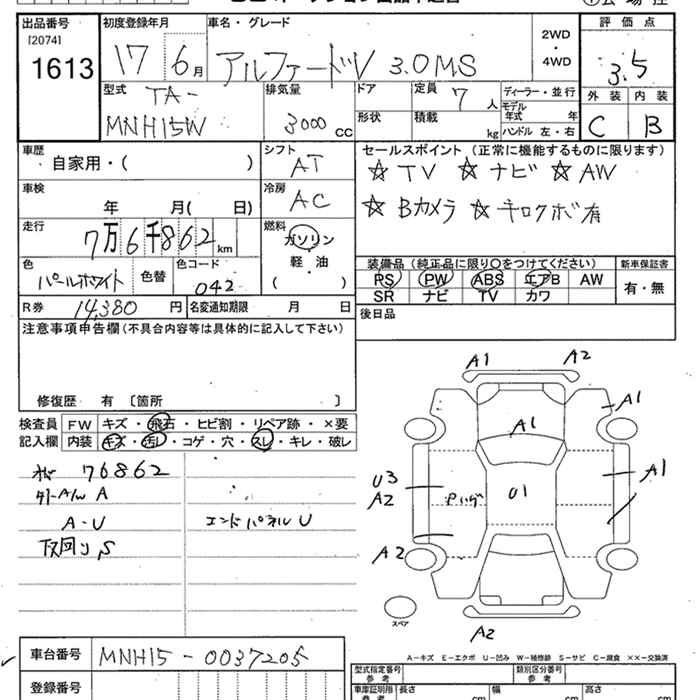 出品番号 初度登録年月 車名・グレード 2WD・4WD 評価点
[2074]
1613 17年6月 アルファードV 3.0MS 3.5
外装 内装
C B
型式 TA-MNH15W 排気量 3000cc ドア 定員 7人 ディーラー・並行
形状 積載 kg モデル年式 年
ハンドル 左・右
車歴 自家用・( ) シフト AT セールスポイント (正常に機能するものに限ります)
☆TV ☆ナビ ☆AW
車検 年 月( 日) 冷房 AC
☆Bカメラ ☆キロクボ有
走行 7万6千862km 燃料 ガソリン
軽・油
( )
色 パールホワイト 色替 色コード 042
装備品(純正品に限り○をつけてください) 新車保証書
RS PW ABS エアB AW 有・無
SR ナビ TV カワ
R券 14,380円 名変通知期限 月 日 後日品
注意事項申告欄(不具合内容等は具体的に記入して下さい)
修復歴 有 〔箇所 〕
検査員 FW キズ・飛石・ヒビ割・リペア跡・×要
記入欄 内装 キズ・汚レ・コゲ・穴・スレ・キレ・破レ
76862
A
A-U エンドパネルU
下回りS
A1 A2
A1
A1
A1
U3
A2
U1
A2
スペア
A2
A-キズ E-エクボ U-凹み W-補修跡 S-サビ C-腐食 ××-交換済
車台番号 MNH15-0037205
型式指定番号 参考 類別区分番号 参考
登録番号 車庫証明用 参考 長さ cm 幅 cm 高さ cm